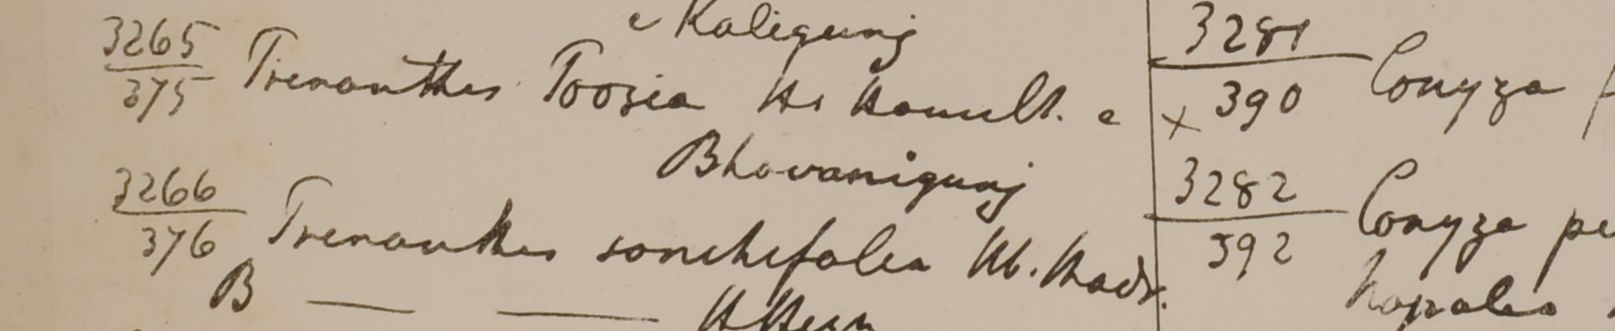 e Kaligunj
3265
375 Prenanthes Toosia Hb Hamilt. e
Bhovanigunj
3266
376 Prenanthes sonchifolia Hb. Madr.
B — —
3281
× 390 Conyza
3282
392 Conyza
Napalia